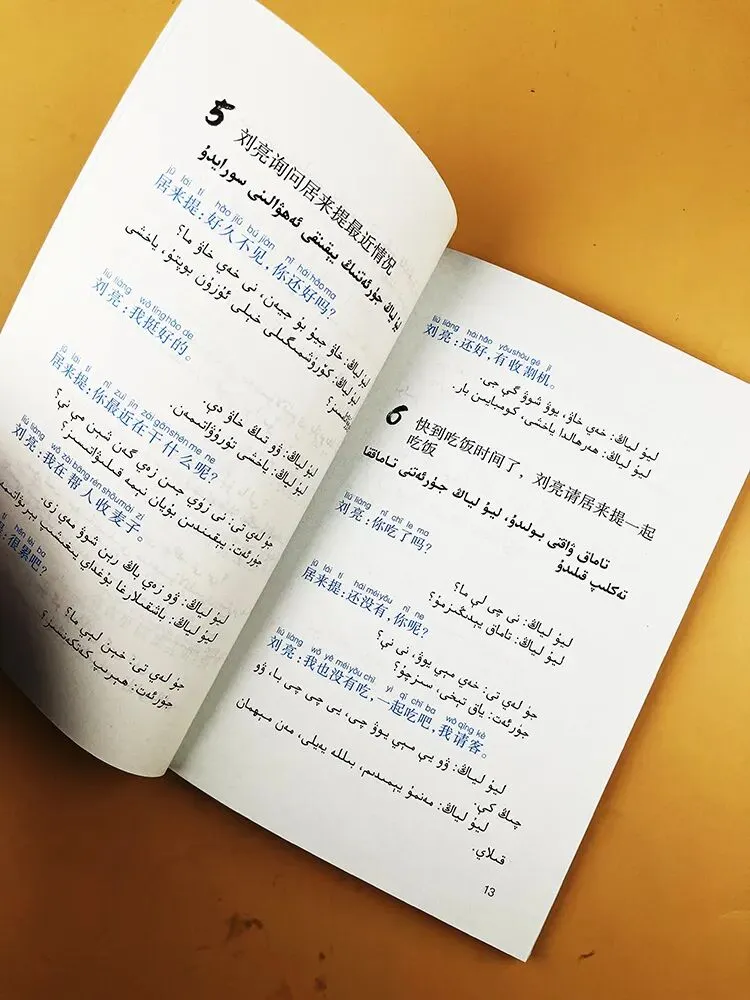 5 刘亮询问居来提最近情况
ليۇ لياڭ جۈرئەتنىڭ يېقىنقى ئەھۋالىنى سورايدۇ
jū lái tí hǎo jiǔ bú jiàn nǐ hái hǎo ma
居来提:好久不见,你还好吗?
ليۇ لياڭ: خاۋ جيۇ بۇ جيەن، نى خەي خاۋ ما؟
ليۇ لياڭ: كۆرۈشمىگىلى خېلى ئۇزۇن بوپتۇ، ياخشى
liú liàng wǒ tǐng hǎo de
刘亮:我挺好的。
ليۇ لياڭ: ۋو تىڭ خاۋ دې.
ليۇ لياڭ: ياخشى تۇرۇۋاتىمەن.
jū lái tí nǐ zuì jìn zài gàn shén me ne
居来提:你最近在干什么呢?
جۈ لەي تى: نى زۇي جىن زەي گەن شېن مې نې؟
جۈرئەت: يېقىندىن بۇيان نېمە قىلىۋاتىسىز؟
liú liàng wǒ zài bāng rén shōu mài zi
刘亮:我在帮人收麦子。
ليۇ لياڭ: ۋو زەي باڭ رېن شوۋ مەي زى.
ليۇ لياڭ: باشقىلارغا بۇغداي يىغىشىپ بېرىۋاتىمەن
hěn lèi ba
提:很累吧?
جۈ لەي تى: خېن لېي با؟
جۈرئەت: ھېرىپ كەتكەنسىز؟
liú liàng hái hǎo yǒu shōu gē jī
刘亮:还好,有收割机。
ليۇ لياڭ: خەي خاۋ، يوۋ شوۋ گې جى.
ليۇ لياڭ: ھەرھالدا ياخشى، كومباين بار.
6 快到吃饭时间了,刘亮请居来提一起
吃饭
تاماق ۋاقتى بولدۇ، ليۇ لياڭ جۈرئەتنى تاماققا
تەكلىپ قىلدۇ
liú liàng nǐ chī le ma
刘亮:你吃了吗?
ليۇ لياڭ: نى چى لې ما؟
ليۇ لياڭ: تاماق يېدىڭىزمۇ؟
jū lái tí hái méi yǒu nǐ ne
居来提:还没有,你呢?
جۈ لەي تى: خەي مېي يوۋ، نى نې؟
جۈرئەت: ياق تېخى، سىزچۇ؟
liú liàng wǒ yě méi yǒu chī yì qǐ chī ba wǒ qǐng kè
刘亮:我也没有吃,一起吃吧,我请客。
ليۇ لياڭ: ۋو يې مېي يوۋ چى، يى چى چى با، ۋو
چىڭ كې.
ليۇ لياڭ: مەنمۇ يېمىدىم، بىللە يەيلى، مەن مېھمان
قىلاي.
13